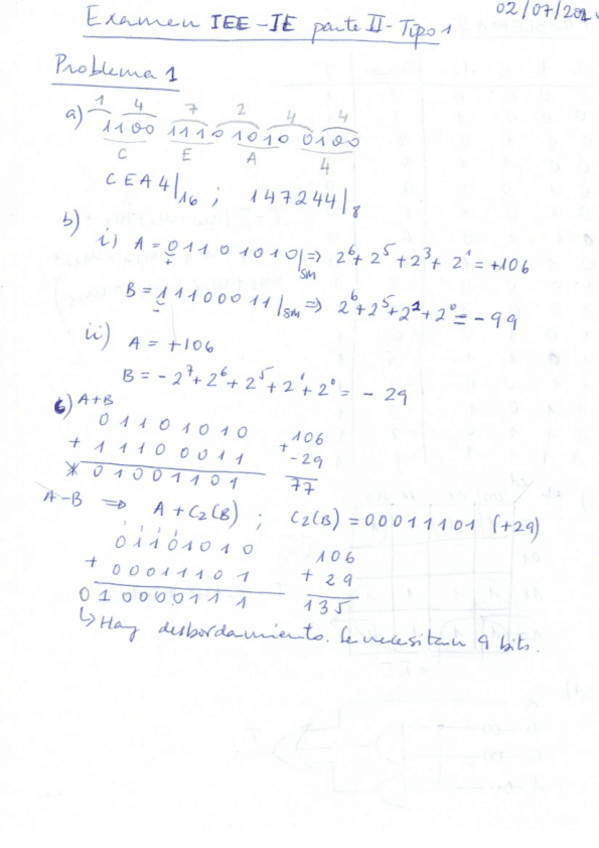 02/07/202
Examen IEE-IE parte II - Tipo 1
Problema 1
1 4 7 2 4 4
a) 1100 1110 1010 0100
C E A 4
CEA4|16 ; 147244|8
b)
i) A = 01101010|SM => 2^6 + 2^5 + 2^3 + 2^1 = +106
+
B = 11100011|SM => 2^6 + 2^5 + 2^1 + 2^0 = -99
-
ii) A = +106
B = -2^7 + 2^6 + 2^5 + 2^1 + 2^0 = -29
c) A+B
0 1 1 0 1 0 1 0 106
+ 1 1 1 0 0 0 1 1 + -29
0 1 0 0 1 1 0 1 77
A-B => A + C2(B) ; C2(B) = 00011101 (+29)
1 1 1 1
0 1 1 0 1 0 1 0 106
+ 0 0 0 1 1 1 0 1 + 29
0 1 0 0 0 0 1 1 1 135
↳ Hay desbordamiento. Se necesitan 9 bits.